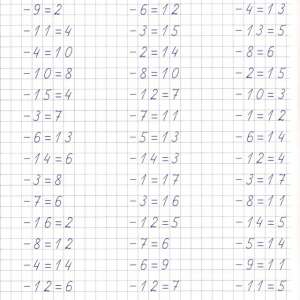 -9=2 -6=12 -4=13
-11=4 -3=15 -13=5
-4=10 -2=14 -8=6
-10=8 -8=10 -2=15
-15=4 -12=7 -10=3
-3=7 -7=11 -1=12
-6=13 -5=13 -6=14
-14=6 -14=3 -12=4
-3=8 -1=17 -3=17
-7=6 -3=16 -8=11
-16=2 -12=5 -14=5
-8=12 -7=6 -5=14
-4=14 -6=9 -9=11
-12=6 -12=7 -11=5